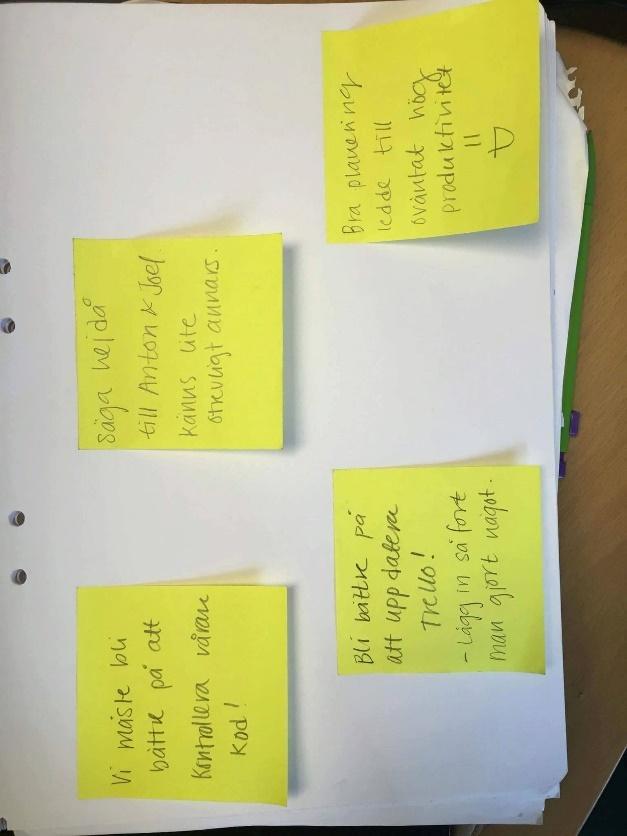 Vi måste bli
bättre på att
Kontrollera våran
kod!
säga hejdå
till Anton & Joel.
känns lite
otrevligt annars.
Bli bättre på
att uppdatera
Trello!
- Lägg in så fort
man gjort något.
Bra planering
ledde till
oväntat hög
produktivitet